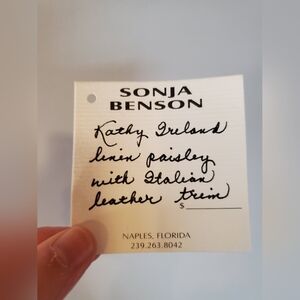 SONJA
BENSON
Kathy Ireland
linen paisley
with Italian
leather trim
$
NAPLES, FLORIDA
239.263.8042